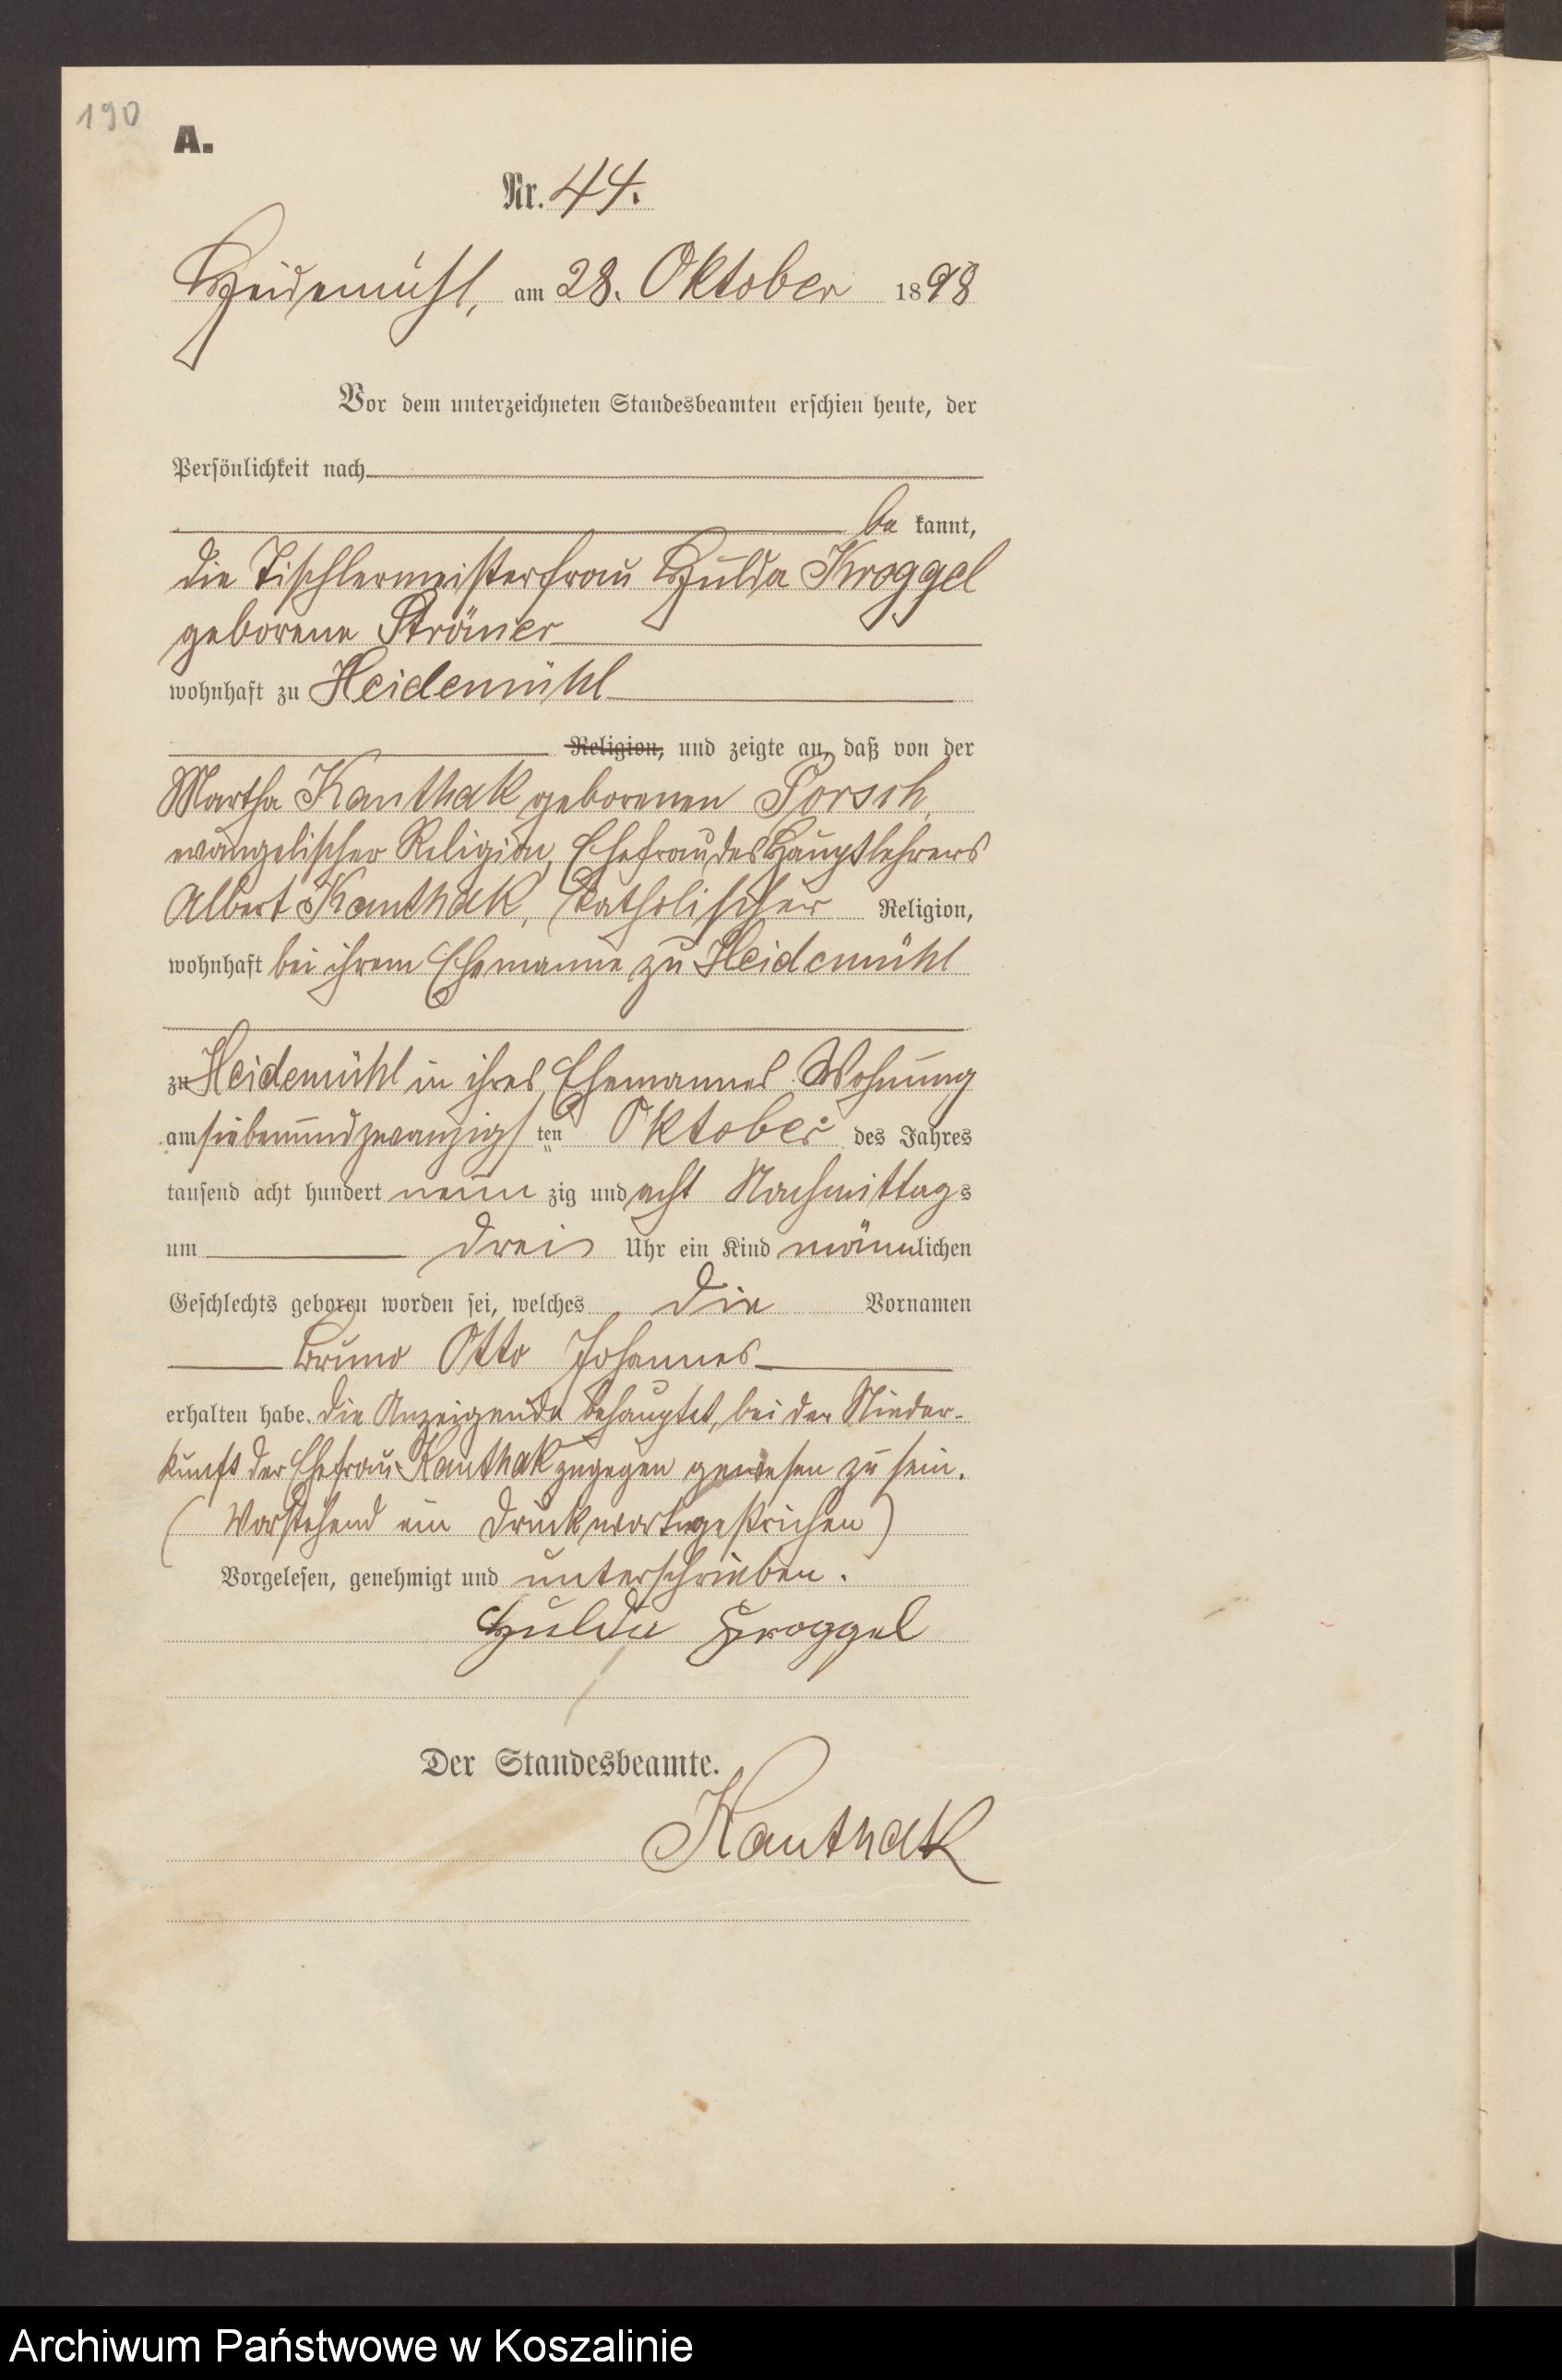 190
A.
Nr. 44.
Heidemühl, am 28. Oktober 1898
Vor dem unterzeichneten Standesbeamten erschien heute, der
Persönlichkeit nach
be kannt,
die Tischlermeisterfrau Hulda Kroggel
geborene Ströner
wohnhaft zu Heidemühl
Religion, und zeigte an, daß von der
Martha Kanthak geborenen Porsch,
evangelischer Religion, Ehefrau des Hauptlehrers
Albert Kanthak, katholischer Religion,
wohnhaft bei ihrem Ehemanne zu Heidemühl
zu Heidemühl in ihres Ehemannes Wohnung
am siebenundzwanzigsten Oktober des Jahres
tausend acht hundert neun zig und acht Nachmittags
um drei Uhr ein Kind männlichen
Geschlechts geboren worden sei, welches die Vornamen
Bruno Otto Johannes
erhalten habe. Die Anzeigende behauptet, bei der Nieder-
kunft der Ehefrau Kanthak zugegen gewesen zu sein.
(Vorstehend ein Druckwort gestrichen)
Vorgelesen, genehmigt und unterschrieben.
Hulda Kroggel
Der Standesbeamte.
Kanthak
Archiwum Państwowe w Koszalinie